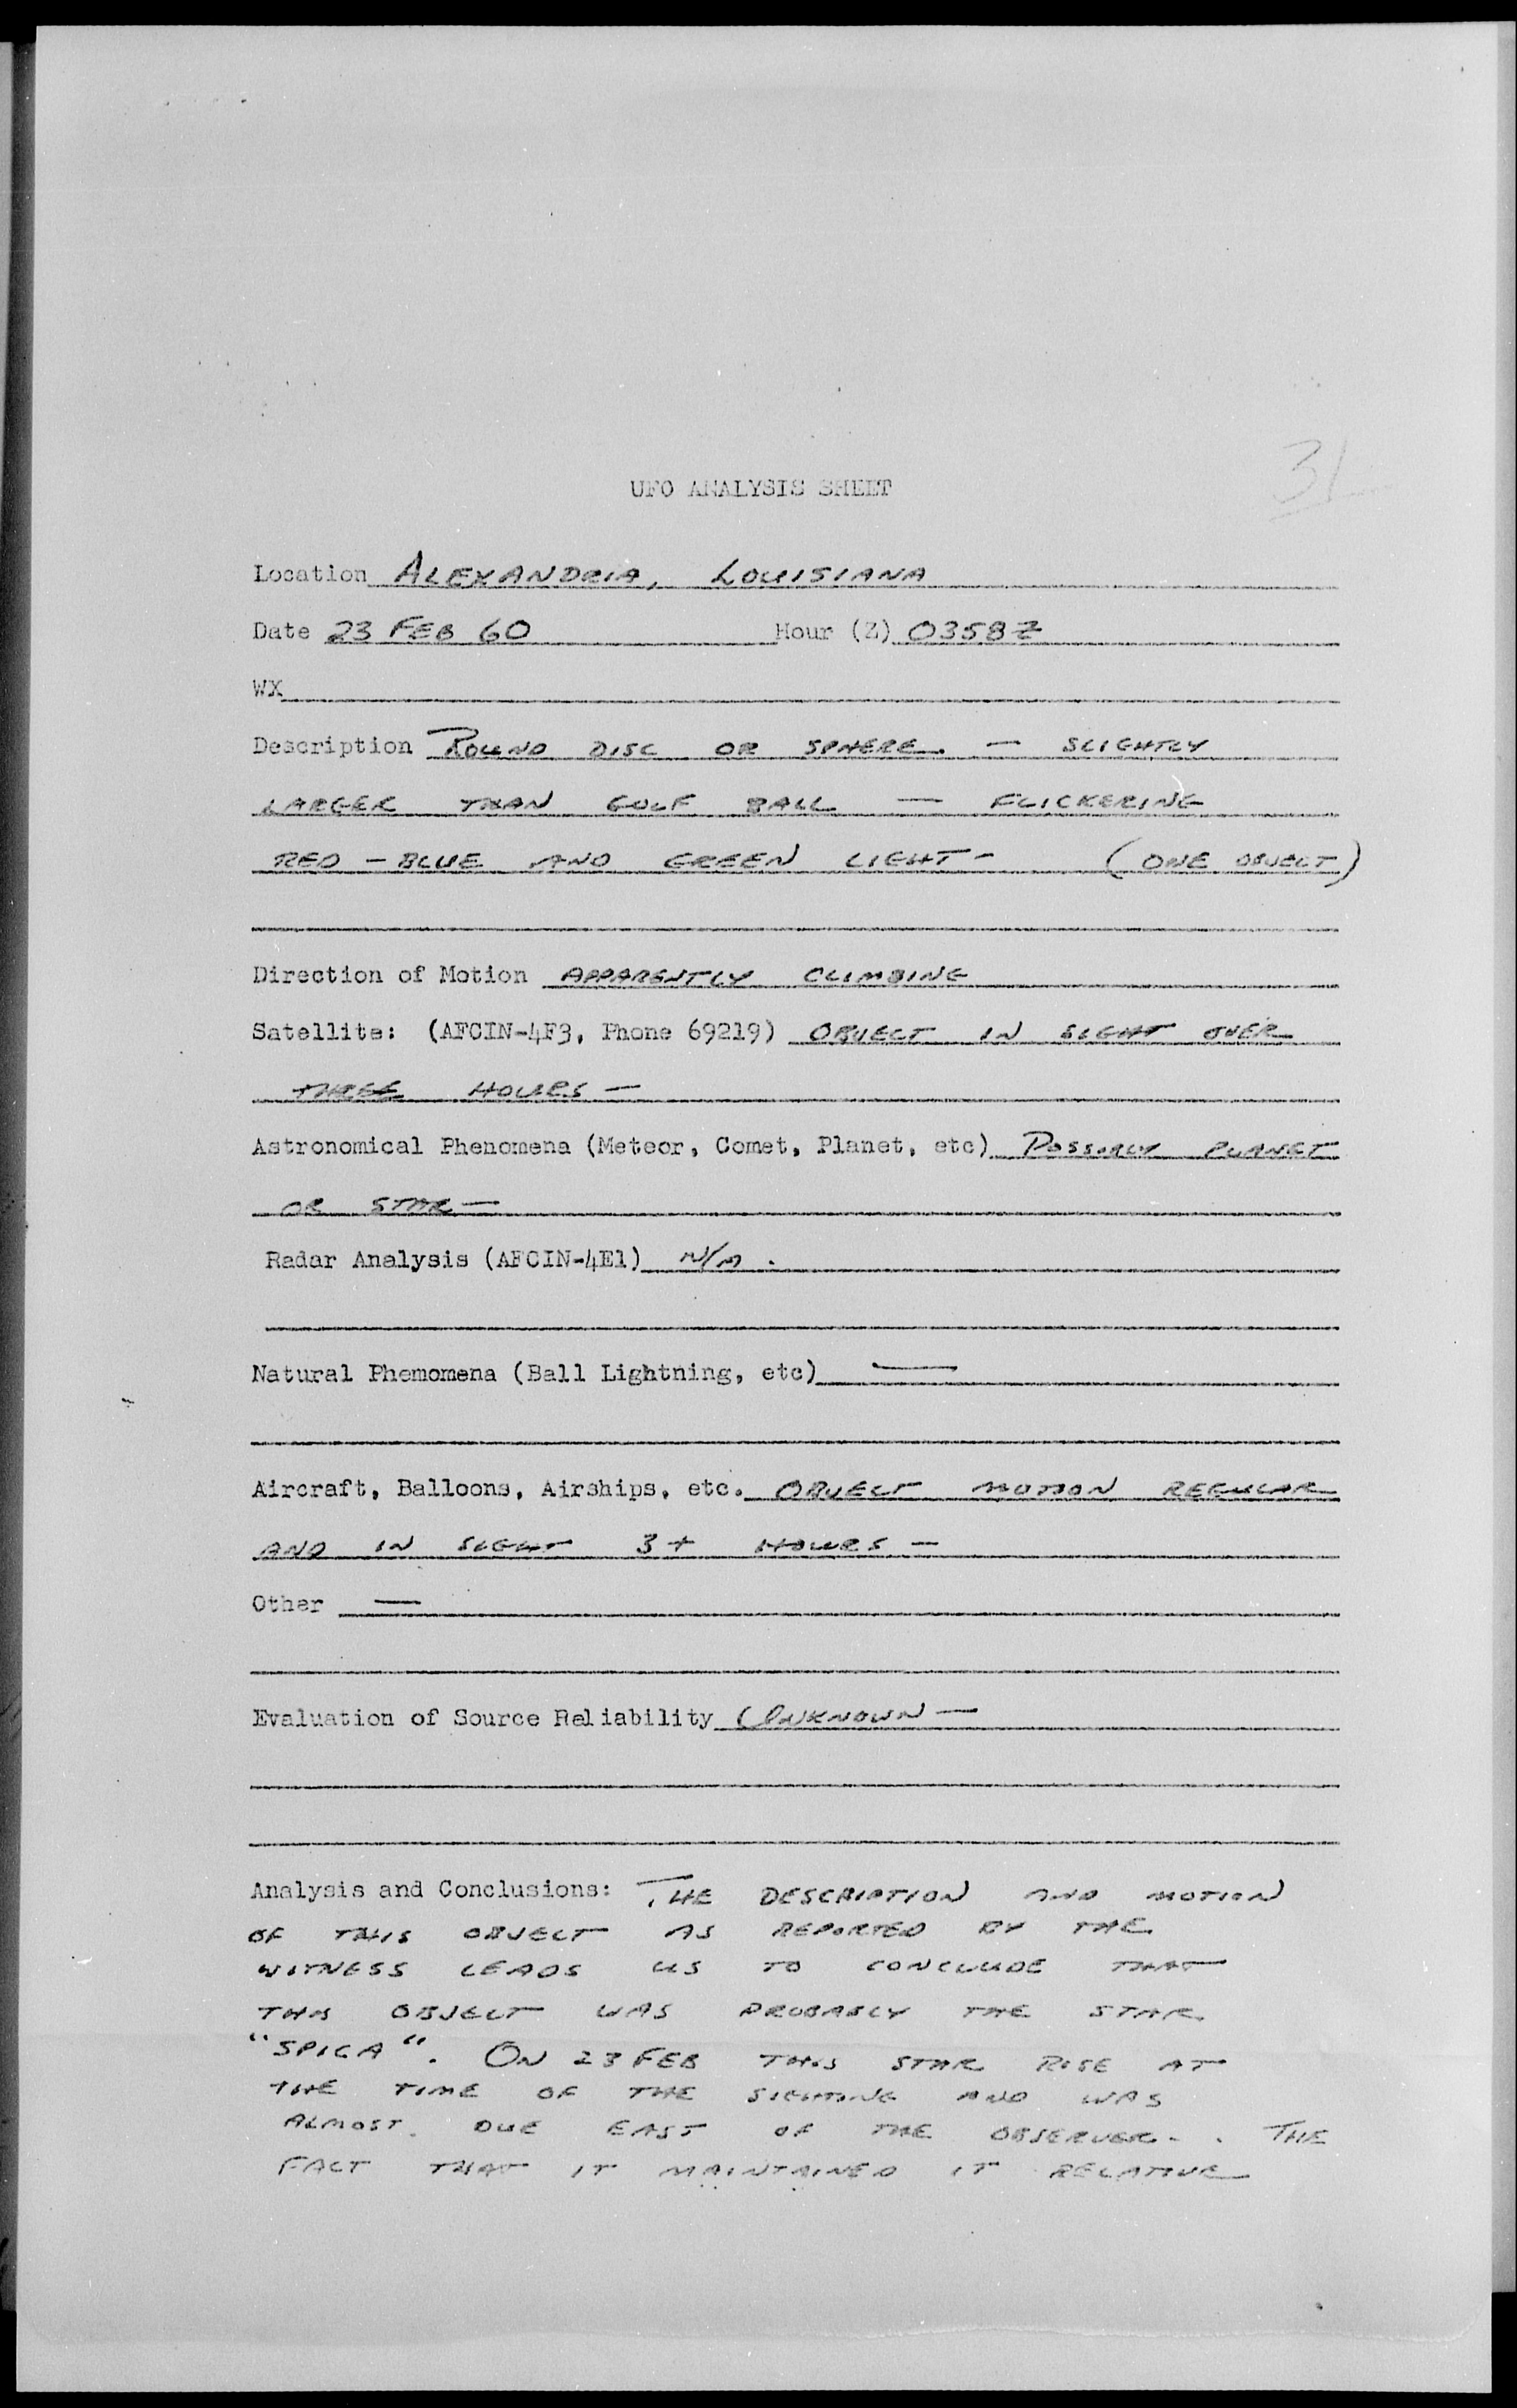 31
UFO ANALYSIS SHEET
Location ALEXANDRIA, LOUISIANA
Date 23 FEB 60 Hour (Z) 0358Z
WX
Description ROUND DISC OR SPHERE. — SLIGHTLY
LARGER THAN GOLF BALL — FLICKERING
RED - BLUE AND GREEN LIGHT - (ONE OBJECT)
Direction of Motion APPARENTLY CLIMBING
Satellite: (AFCIN-4F3, Phone 69219) OBJECT IN SIGHT OVER
THREE HOURS —
Astronomical Phenomena (Meteor, Comet, Planet, etc) POSSIBLY PLANET
OR STAR —
Radar Analysis (AFCIN-4E1) N/A .
Natural Phemomena (Ball Lightning, etc) —
Aircraft, Balloons, Airships, etc. OBJECT MOTION REGULAR
AND IN SIGHT 3+ HOURS —
Other —
Evaluation of Source Reliability UNKNOWN —
Analysis and Conclusions: THE DESCRIPTION AND MOTION
OF THIS OBJECT AS REPORTED BY THE
WITNESS LEADS US TO CONCLUDE THAT
THIS OBJECT WAS PROBABLY THE STAR
"SPICA". ON 23 FEB THIS STAR RISE AT
THE TIME OF THE SIGHTING AND WAS
ALMOST DUE EAST OF THE OBSERVER. . THE
FACT THAT IT MAINTAINED IT RELATIVE